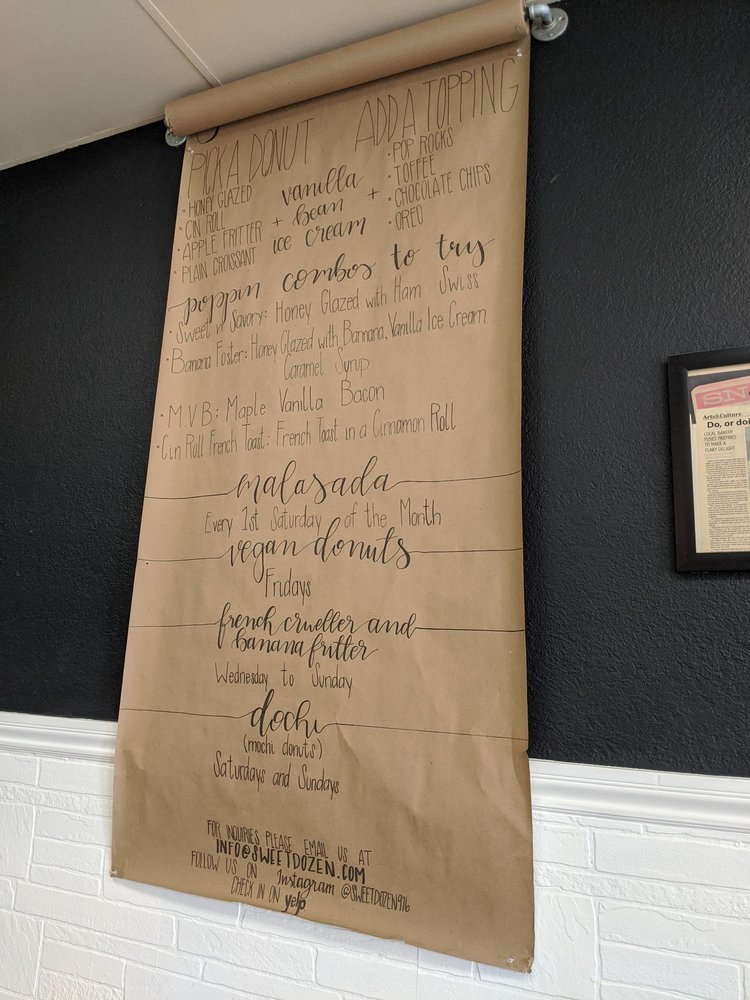 PICK A DONUT
• HONEY GLAZED
• CIN ROLL
• APPLE FRITTER
• PLAIN CROISSANT
+ vanilla
bean
ice cream +
ADD A TOPPING
• POP ROCKS
• TOFFEE
• CHOCOLATE CHIPS
• OREO
poppin combos to try
• Sweet n' Savory: Honey Glazed with Ham Swiss
• Banana Foster: Honey Glazed with Bannana, Vanilla Ice Cream
Caramel Syrup
• M.V.B.: Maple Vanilla Bacon
• Cin Roll French Toast: French Toast in a Cinnamon Roll
malasada
Every 1st Saturday of the Month
vegan donuts
Fridays
french crueller and
banana fritter
Wednesday to Sunday
dochi
(mochi donuts)
Saturdays and Sundays
FOR INQUIRIES PLEASE EMAIL US AT
INFO@SWEETDOZEN.COM
FOLLOW US ON Instagram @SWEETDOZEN916
CHECK IN ON yelp
SN
Arts&Culture
Do, or doi
LOCAL BAKERY
FUSES PASTRIES
TO MAKE A
FLAKY DELIGHT